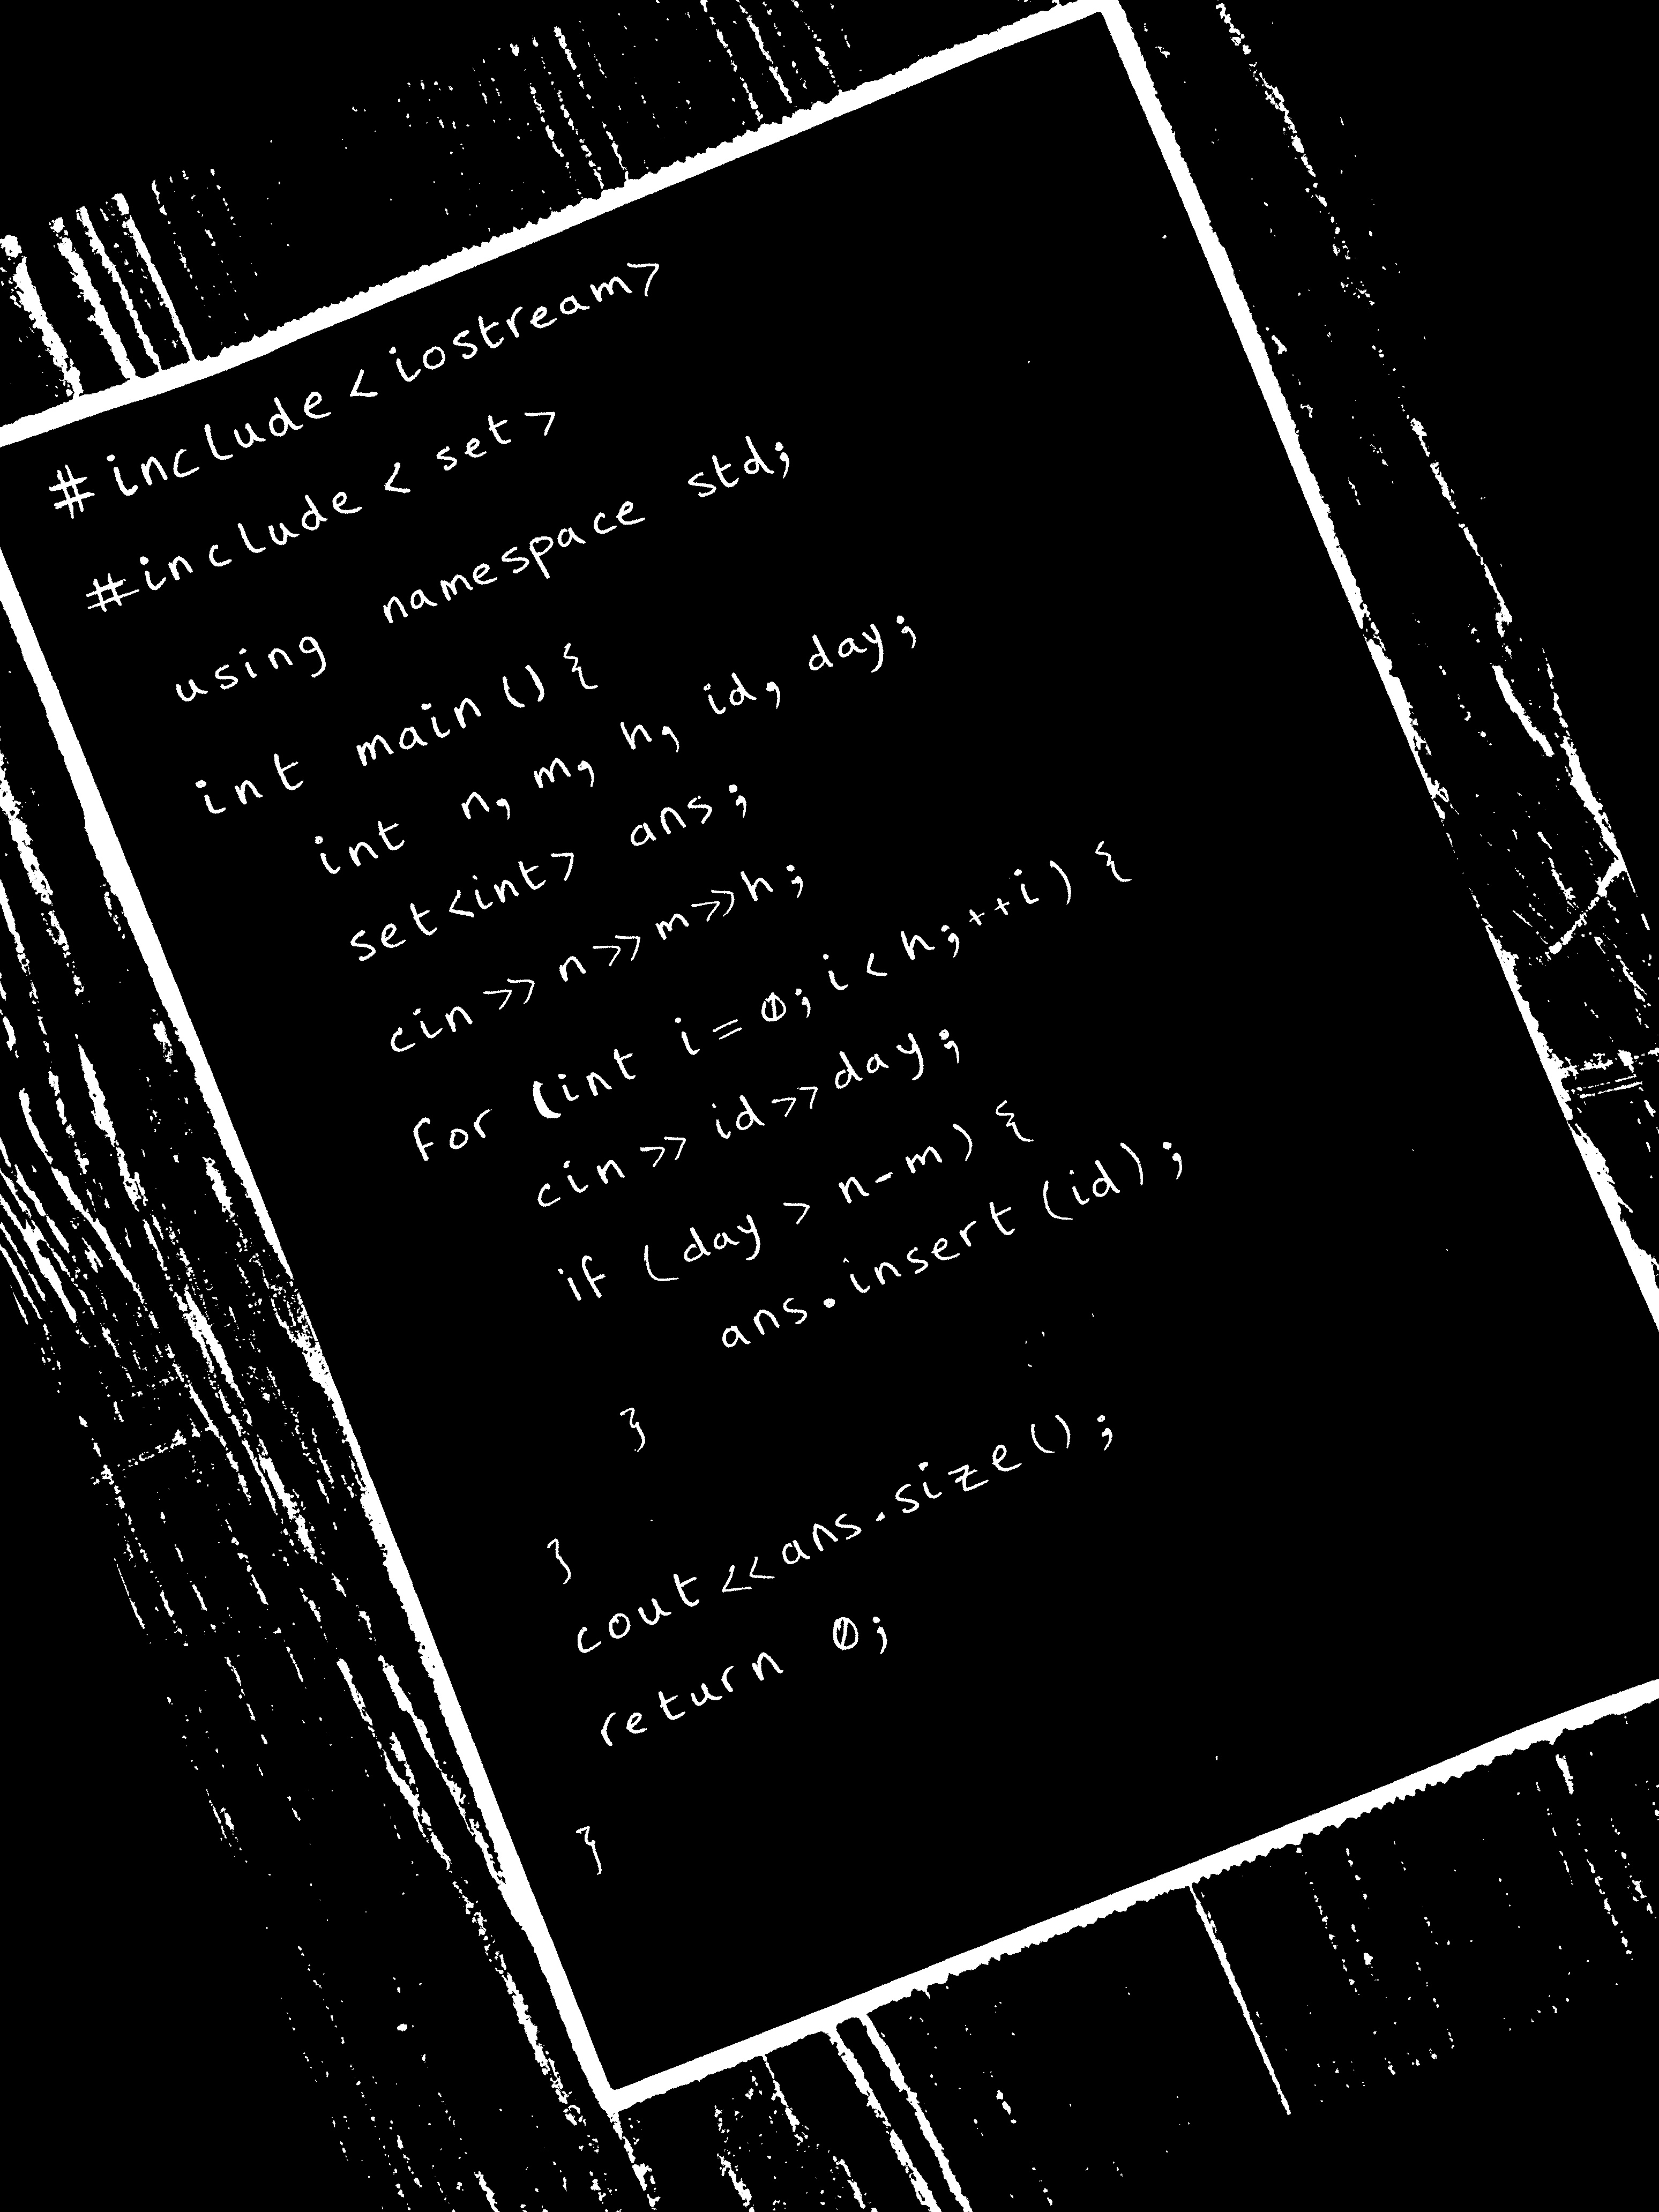 #include < iostream>
#include < set >
using namespace std;
int main () {
int n, m, h, id, day;
set<int> ans;
cin >> n >> m >> h;
for (int i = 0; i < h; ++i) {
cin >> id >> day;
if (day > n-m) {
ans.insert (id);
}
}
cout << ans.size ();
return 0;
}